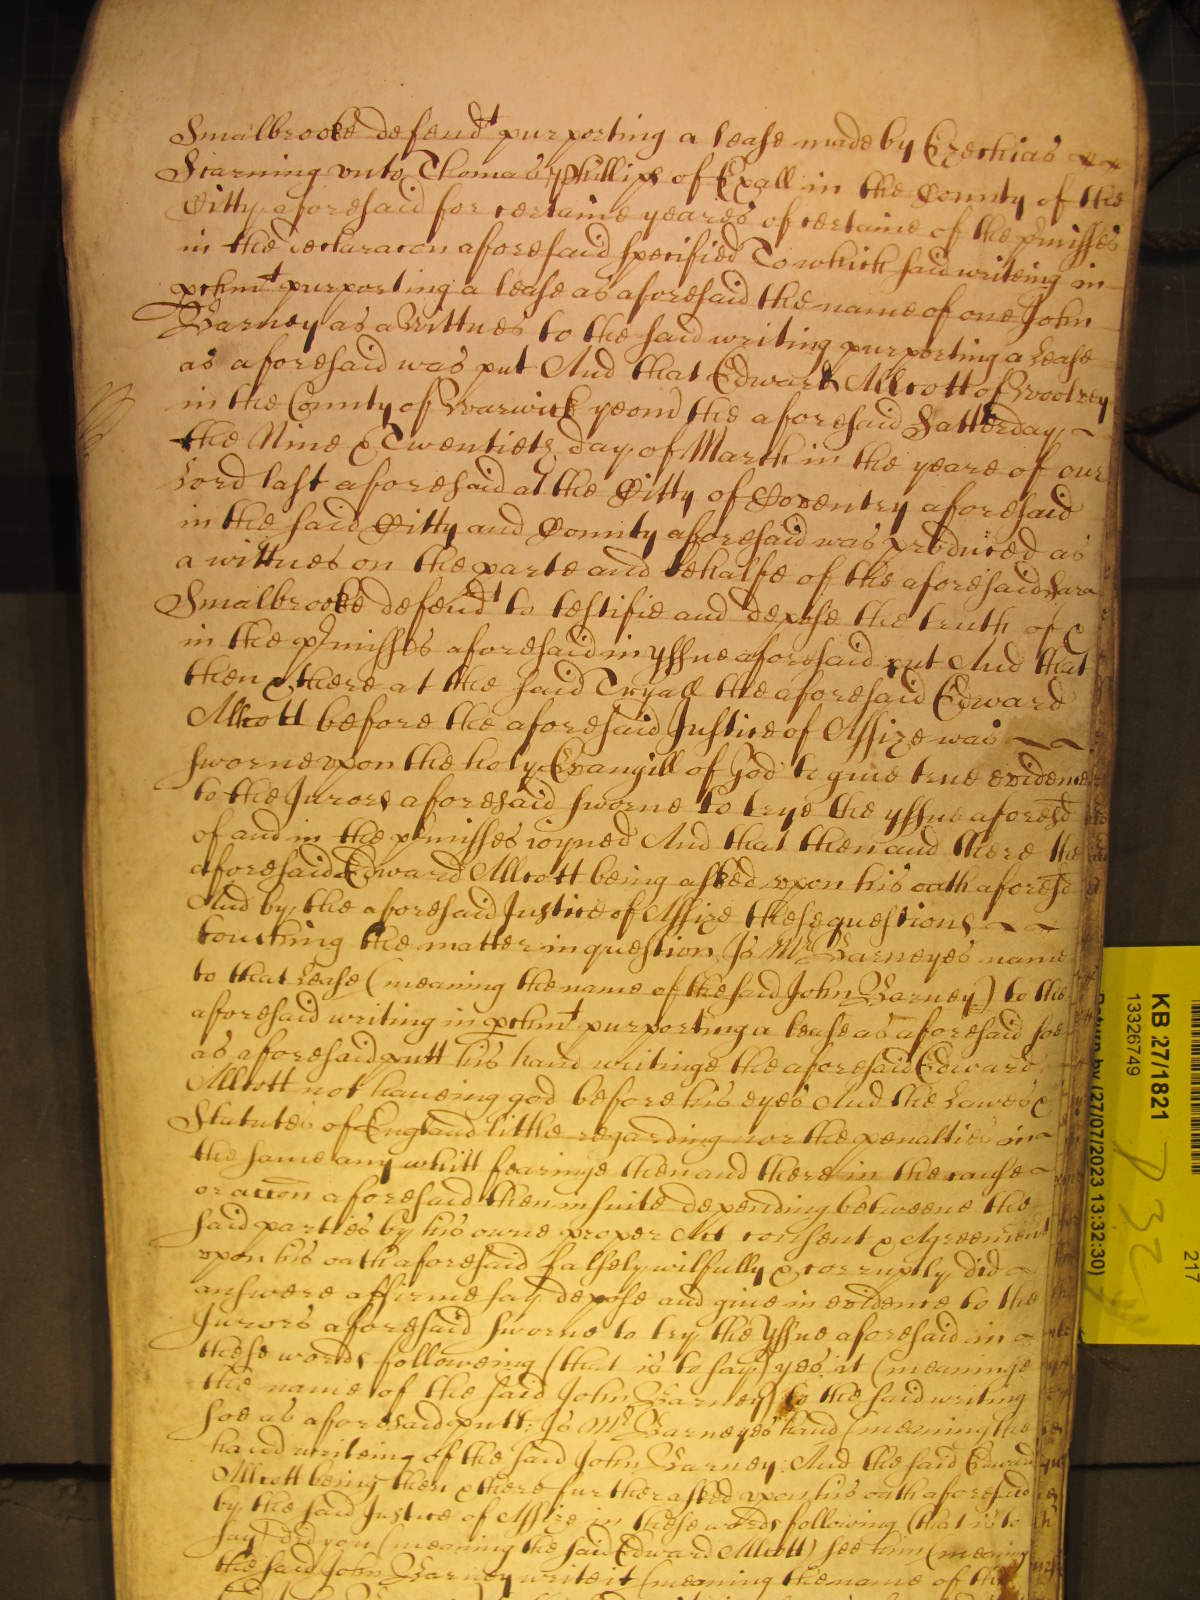 Smalbrooke defendt purporting a lease made by Ezechias
Starning unto Thomas Phillips of Exall in the County of the
Citty aforesaid for certaine yeares of certaine of the pmisses
in the declaracon aforesaid specified To which said writeing in
pchmt purporting a lease as aforesaid the name of one John
Barney as a Wittnes to the said writing purporting a Lease
as aforesaid was put And that Edward Allcott of Woolvey
in the County of Warwick yeom the aforesaid Satterday
the Nine & Twentieth day of March in the yeare of our
Lord last aforesaid at the Citty of Coventry aforesaid
in the said Citty and County aforesaid was produced as
a wittnes on the parte and behalfe of the aforesaid Sara
Smalbrooke defendt to testifie and depose the truth of &
in the pmisses aforesaid in yssue aforesaid put And that
then & there at the said Tryall the aforesaid Edward
Allcott before the aforesaid Justice of Assize was
sworne upon the holy Evangill of God to give true evidence
to the Jurors aforesaid sworne to trye the yssue aforesd
of and in the pmisses ioyned And that then and there the
aforesaid Edward Allcott being asked upon his oath aforesd
And by the aforesaid Justice of Assize these questions
touching the matter in question Is Mr Barneyes name
to that Lease (meaning the name of the said John Barney) to the
aforesaid writing in pchmt purporting a lease as aforesaid soe
as aforesaid putt his hand writinge the aforesaid Edward
Allcott not haveing god before his eyes And the Lawes &
Statutes of England little regarding nor the penalties in
the same any whitt fearinge then and there in the cause
or accon aforesaid then in suite depending betweene the
said parties by his owne proper Act consent & Agreement
upon his oath aforesaid falsely wilfully & corruptly did
answere affirme say depose and give in evidence to the
Jurors aforesaid sworne to try the Yssue aforesaid in
these words followeing (that is to say) yes it (meaninge
the name of the said John Barney) to the said writing
soe as aforesaid putt: Is Mr Barneyes hand (meaning the
hand writeing of the said John Barney: And the said Edward
Allcott being then & there further asked upon his oath aforesaid
by the said Justice of Assize in these words following (that is to
say) did you (meaning the said Edward Allcott) see him (meaning
the said John Barney write it (meaning the name of the
KB 27/1821
13326749
Return by (27/07/2023 13:32:30)
217